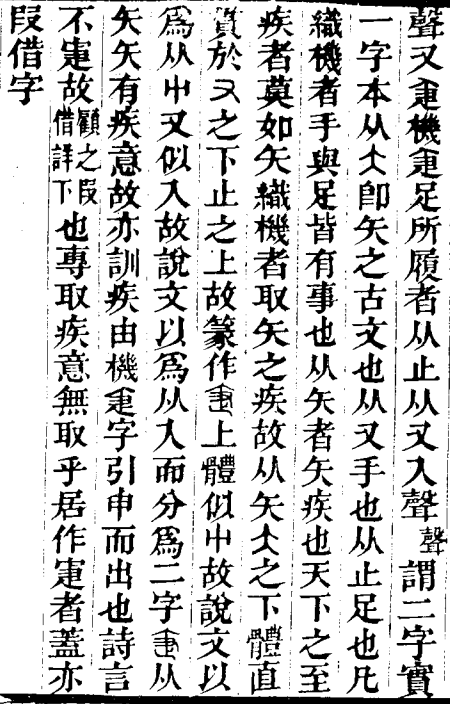 聲又疌機疌足所履者从止从又入聲聲謂二字實
一字本从大卽矢之古文也从又手也从止足也凡
織機者手與足皆有事也从矢者矢疾也天下之至
疾者莫如矢織機者取矢之疾故从矢大之下體直
貫於又之下止之上故篆作疌上體似屮故說文以
爲从屮又似入故說文以爲从入而分爲二字疌从
矢矢有疾意故亦訓疾由機疌字引申而出也詩言
不寁故顧之叚借詳下也專取疾意無取乎居作寁者蓋亦
叚借字